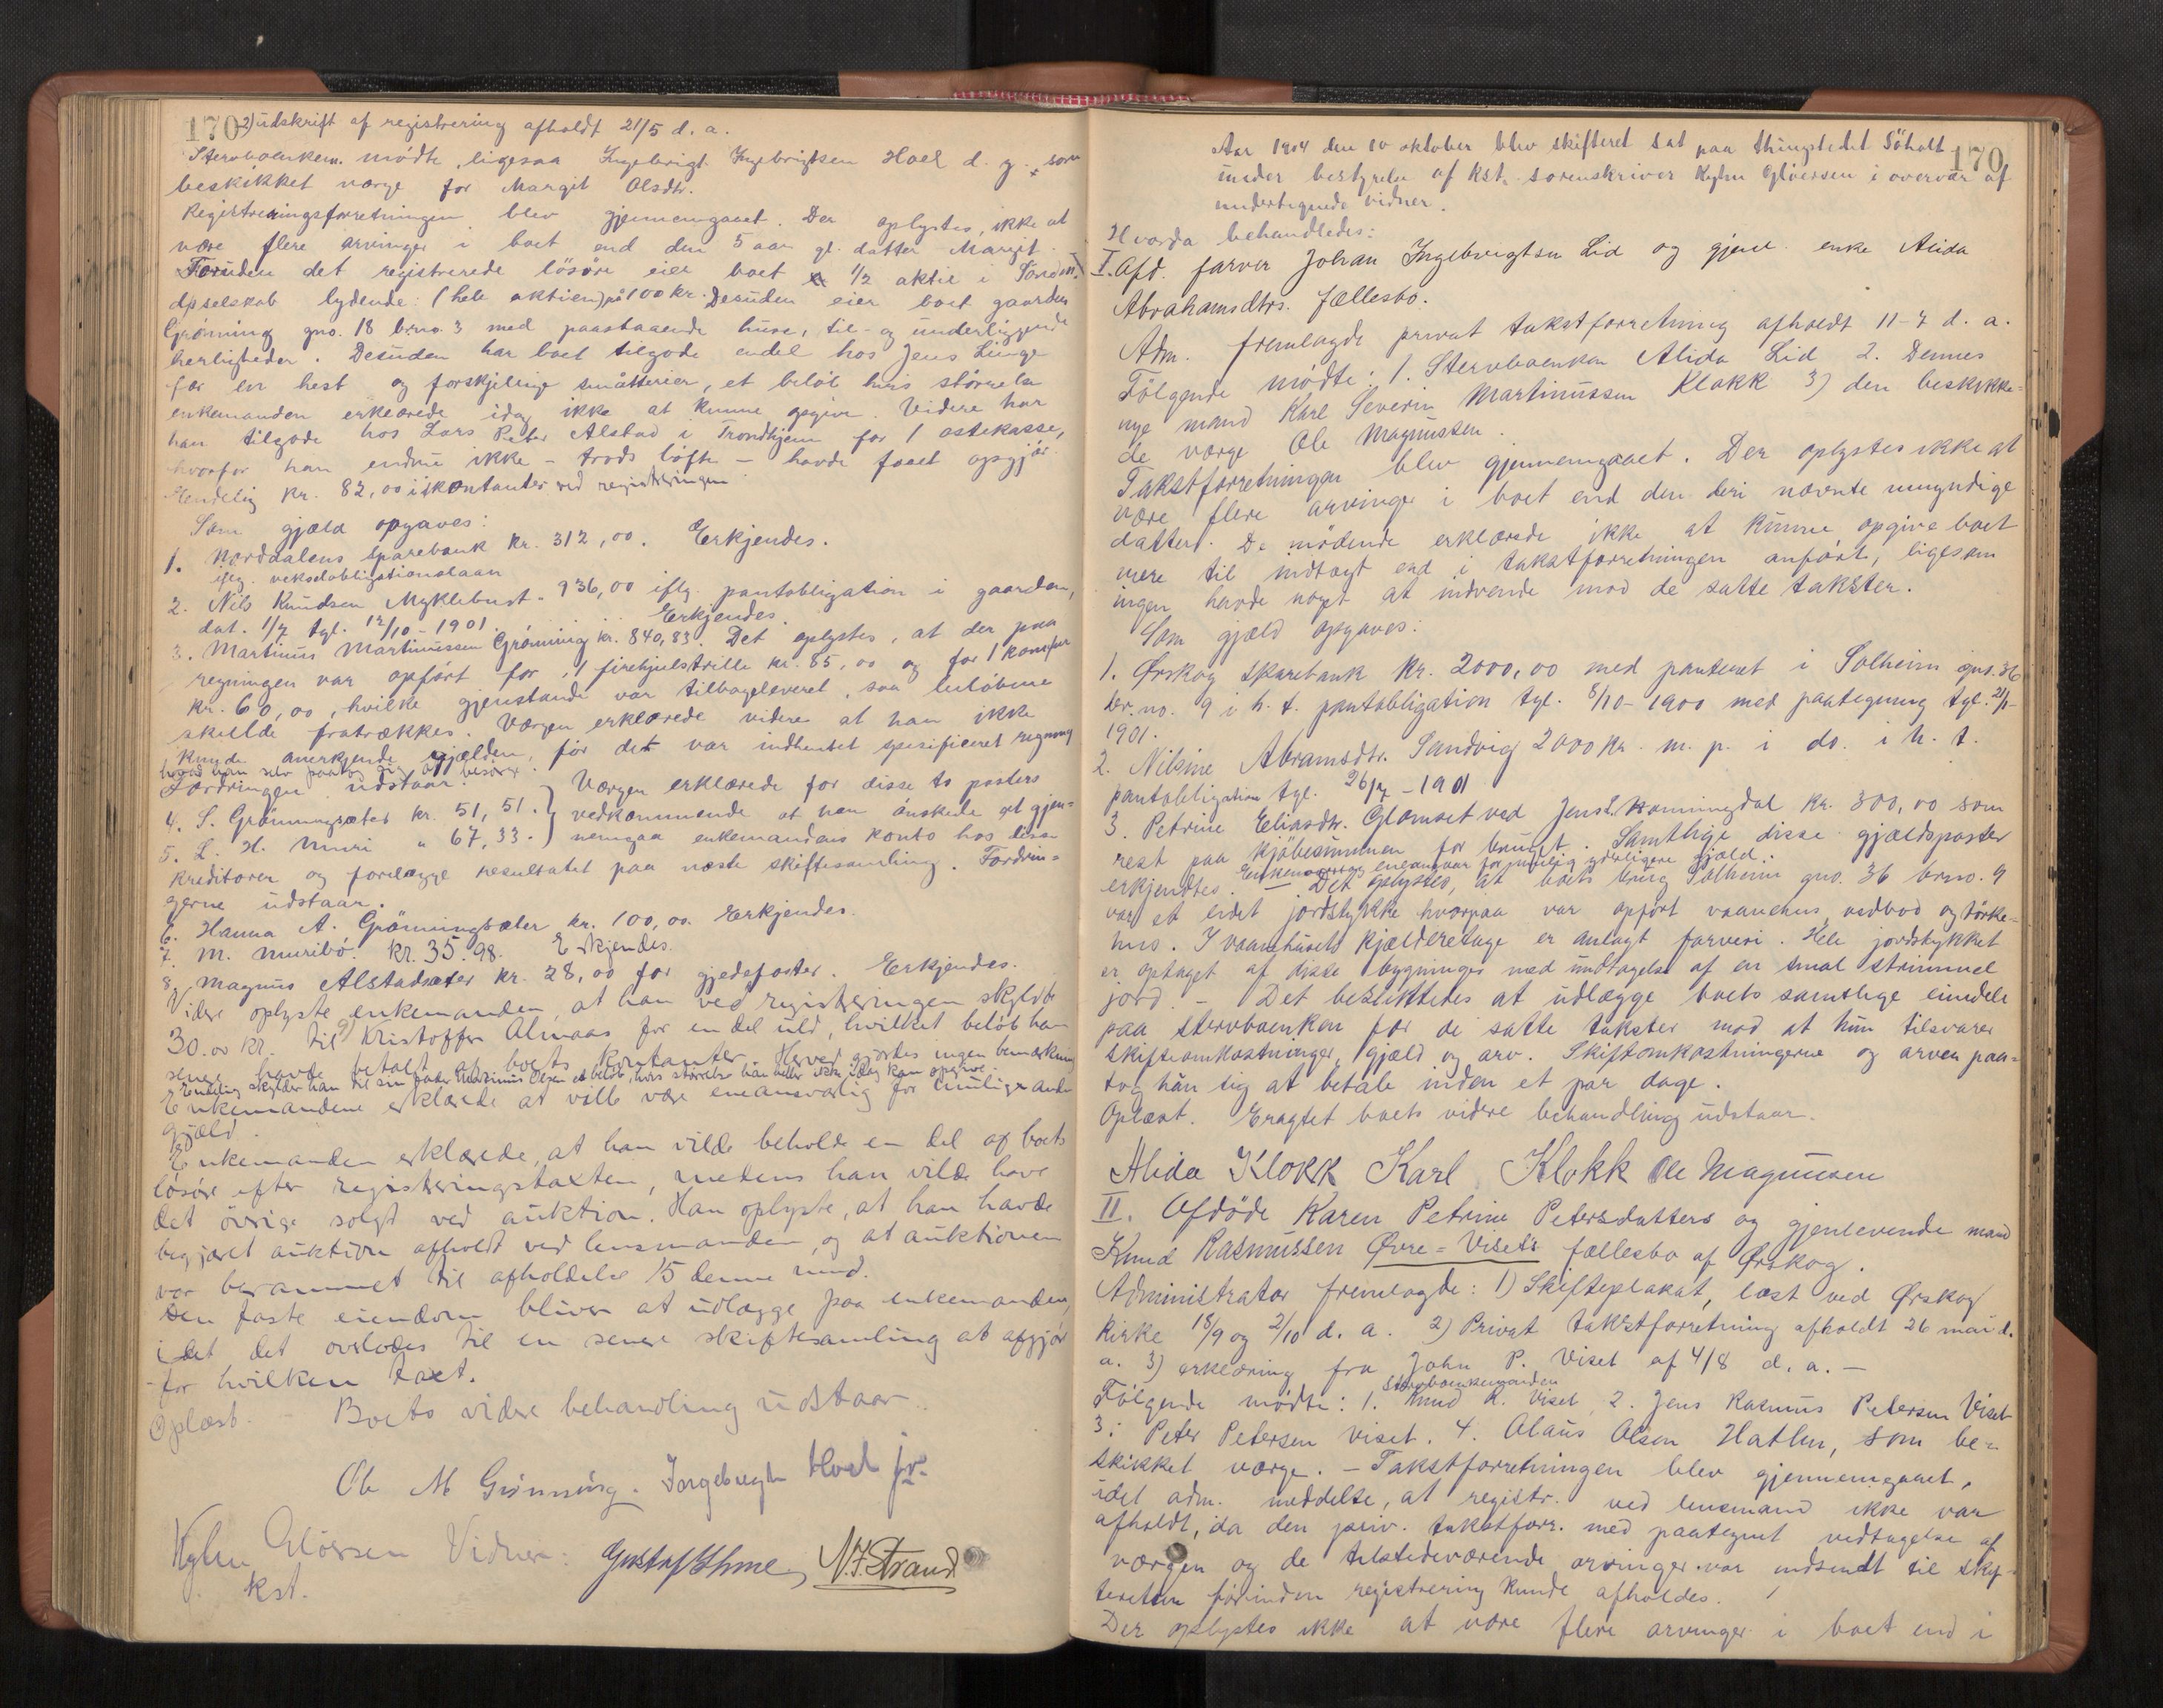 170 2) udskrift af registrering afholdt 21/5 d. a.
Stervboenkem. mødte, ligesaa Ingebrigt Ingebrigtsen Hoel d. y., som
beskikket værge for Margit Olsdtr.
Registreringsforretningen blev gjennemgaaet. Der oplystes ikke at
være flere arvinger i boet end den 5 aar gl. datter Margit.
Foruden det registrerede lösöre eier boet 1/2 aktie i
dpselskab lydende: (hele aktien) på 100 kr. Desuden eier boet gaarden
Grönning gno. 18 brno. 3 med paastaaende huse, til- og underliggende
herligheder. Desuden har boet tilgode endel hos Jens Linge
for en hest og forskjelige småtterier, et beløb hvis störrelse
enkemanden erklærede idag ikke at kunne opgive. Videre har
han tilgode hos Lars Peter Alstad i Trondhjem for 1 ostekasse,
hvorfor han endnu ikke - trods löfte - havde faaet opgjör.
Hendelig kr. 82,00 i kontanter ved registreringen
Som gjæld opgaves:
1. Norddalens sparebank kr. 312,00. Erkjendes.
iflg. vekselobligationslaan
2. Nils Knudsen Myklebust - 936,00 iflg. pantobligation i gaarden,
dat. 1/7 tgl. 12/10 - 1901. Erkjendes.
3. Martinus Martinussen Grönning kr. 840,83. Det oplystes, at der paa
regningen var opfört for 1 firehjulstrille kr. 85,00 og for 1 komfur
kr. 60,00, hvilke gjenstande var tilbageleveret, saa belöbene
skulde fratrækkes. Værgen erklærede videre at han ikke
kunde anerkjende gjælden, för det var indhentet spesificeret regning
hvad han selv paatog sig at besörge.
Fordringen udstaar.
4. S. Grönningsæter kr. 51,51. } Værgen erklærede for disse to posters
vedkommende at han önskede at gjen-
5. L. H. Muri " 67,33. } nemgaa enkemandens konto hos disse
kreditorer og forelægge resultatet paa næste skiftesamling. Fordrin-
gerne udstaar.
6. Hanna A. Grönningsæter kr. 100,00. Erkjendes.
7. M. Muribö kr. 35.98. Erkjendes.
8) Magnus Alstadsæter kr. 28,00 for gjedefoster. Erkjendes.
Videre oplyste enkemanden, at han ved registreringen skyldte
30.00 kr. til 9) Kristoffer Almaas for en del uld, hvilket belöb han
senere havde betalt af boets kontanter. Herved gjordes ingen bemærkning
Endelig skylder han til sin fader Martinus Olsen et belöb, hvis störrelse han heller ikke idag kan opgive.
Enkemandene erklærede at ville være eneansvarlig for mulige anden
gjæld.
Enkemanden erklærede, at han vilde beholde en del af boets
lösöre efter registreringstaxten, medens han vilde have
det övrige solgt ved auktion. Han oplyste, at han havde
begjæret auktion afholdt ved lensmanden, og at auktionen
var berammet til afholdelse 15 denne mnd.
Den faste eiendom bliver at udlægge paa enkemanden,
idet det overlodes til en senere skiftesamling at afgjör
for hvilken taxt.
Oplæst. Boets videre behandling udstaar.
Ole M Grönning. Ingebrigt Hoel jr.
Kyhn Glöersen Vidner: Gustaf Thme, N. F. Strand
kst.
170
Aar 1904 den 10 oktober blev skifteret sat paa thingstedet Söholt
under bestyrelse af kst. sorenskriver Kyhn Glöersen i overvær af
undertegnede vidner.
Hvorda behandledes:
I. Afd. farver Johan Ingebrigtsen Lid og gjenl. enke Alida
Abrahamsdtrs. fællesbo.
Adm. fremlagde privat takstforretning afholdt 11-7 d. a.
Fölgende mödte: 1. Stervboenken Alida Lid 2. Dennes
nye mand Karl Severin Martinussen Klokk 3) den beskikke-
de værge Ole Magnussen.
Takstforretningen blev gjennemgaaet. Der oplystes ikke at
være flere arvinger i boet end den deri nævnte umyndige
datter. De mödende erklærede ikke at kunne opgive boet
mere til indtægt end i takstforretningen anfört, ligesom
ingen havde noget at indvende mod de satte takster.
Som gjæld opgaves:
1. Ørskog sparebank kr. 2000,00 med panteret i Solheim gno. 36
br.no. 9 i h. t. pantobligation tgl. 8/10 - 1900 med paategning tgl. 2/1-
1901.
2. Nilsine Abramsdtr. Sandvig 2000 kr. m. p. i do. i h. t.
pantobligation tgl. 26/7 - 1901
3. Petrine Eliasdtr. Glomset ved Jens Ramningdal kr. 300,00 som
rest paa kjöbesummen for bruget. Samtlige disse gjældsposter
Enken eneansvar for mulig yderligere gjæld.
erkjendtes. - Det oplystes, at boets brug Solheim gno. 36 brno. 9
var et lidet jordstykke hvorpaa var opfört vaanehus, vedbod og törke-
hus. I vaanehusets kjælderetage er anlagt farveri. Hele jordstykket
er optaget af disse bygninger med undtagelse af en smal strimmel
jord. - Det besluttedes at udlægge boets samtlige eiendele
paa stervboenken for de satte takster mod at hun tilsvarer
skifteomkostninger, gjæld og arv. Skifteomkostningerne og arven paa-
tog hun sig at betale inden et par dage.
Oplæst. Eragtet boets videre behandling udstaar.
Alida Klokk Karl Klokk Ole Magnusen
II. Afdöde Karen Petrine Petersdatters og gjenlevende mand
Knud Rasmussen Øvre-Visets fællesbo af Ørskog.
Administrator fremlagde: 1) Skifteplakat, læst ved Ørskog
kirke 18/9 og 2/10 d. a. 2) Privat takstforretning afholdt 26 mai d.
a. 3) erklæring fra John P. Viset af 4/8 d. a. -
Stervboenkemanden
Fölgende mödte: 1. Knud R. Viset 2. Jens Rasmus Petersen Viset
3. Peter Petersen Viset. 4. Olaus Olsen Hatlen, som be-
skikket værge. - Takstforretningen blev gjennemgaaet,
idet adm. meddelte, at registr. ved lensmand ikke var
afholdt, da den priv. takstforr. med paategnet vedtagelse af
værgen og de tilstedeværende arvinger var indsendt til skif-
teretten förinden registrering kunde afholdes.
Der oplystes ikke at være flere arvinger i boet end i